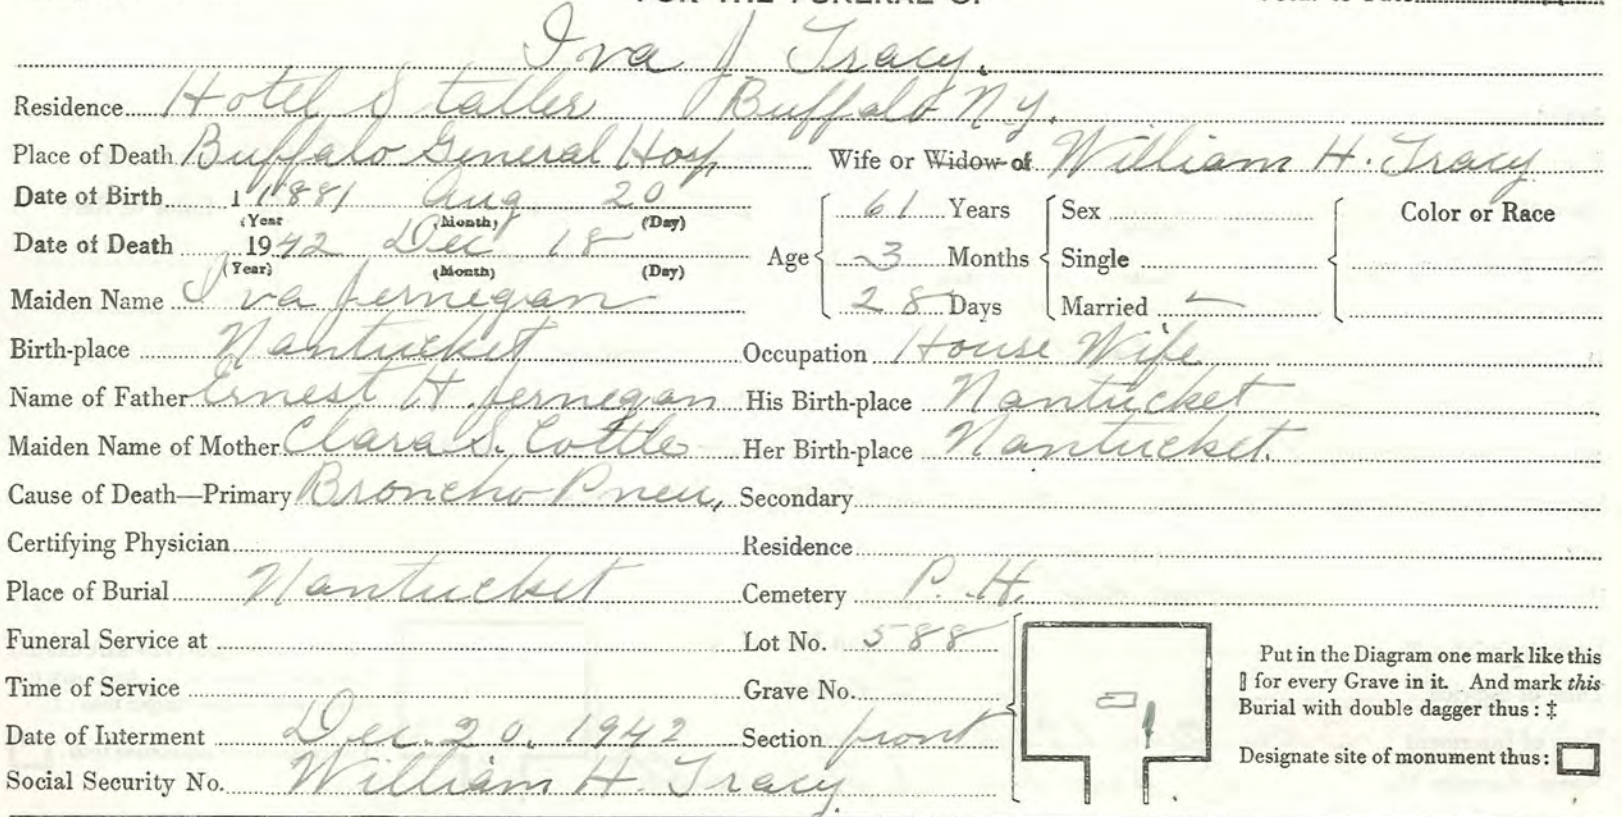 FOR THE FUNERAL OF
Iva J Tracy.
Residence Hotel Statler Buffalo Ny.
Place of Death Buffalo General Hosp Wife or Widow of William H. Tracy
Date of Birth 1881 Aug 20
(Year (Month) (Day)
61 Years Sex Color or Race
Date of Death 1942 Dec 18
(Year) (Month) (Day)
Age 3 Months Single
Maiden Name Iva Jernegan
28 Days Married
Birth-place Nantucket Occupation House Wife
Name of Father Ernest H. Jernegan His Birth-place Nantucket
Maiden Name of Mother Clara S. Cottle Her Birth-place Nantucket.
Cause of Death—Primary Broncho Pneu, Secondary
Certifying Physician Residence
Place of Burial Nantucket Cemetery P. H.
Funeral Service at Lot No. 588
Time of Service Grave No.
Date of Interment Dec. 20, 1942 Section front
Social Security No. William H. Tracy
Put in the Diagram one mark like this
▯ for every Grave in it. And mark this
Burial with double dagger thus: ‡
Designate site of monument thus: